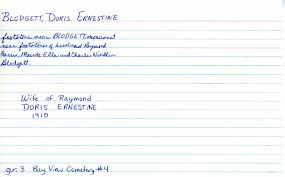 BLODGETT, DORIS ERNESTINE
footstone near BLODGETT monument
near footstones of husband Raymond
Maude Ella and Charles
Blodgett.
Wife of Raymond
DORIS ERNESTINE
1910
gvr. 3 Bay View Cemetery #4